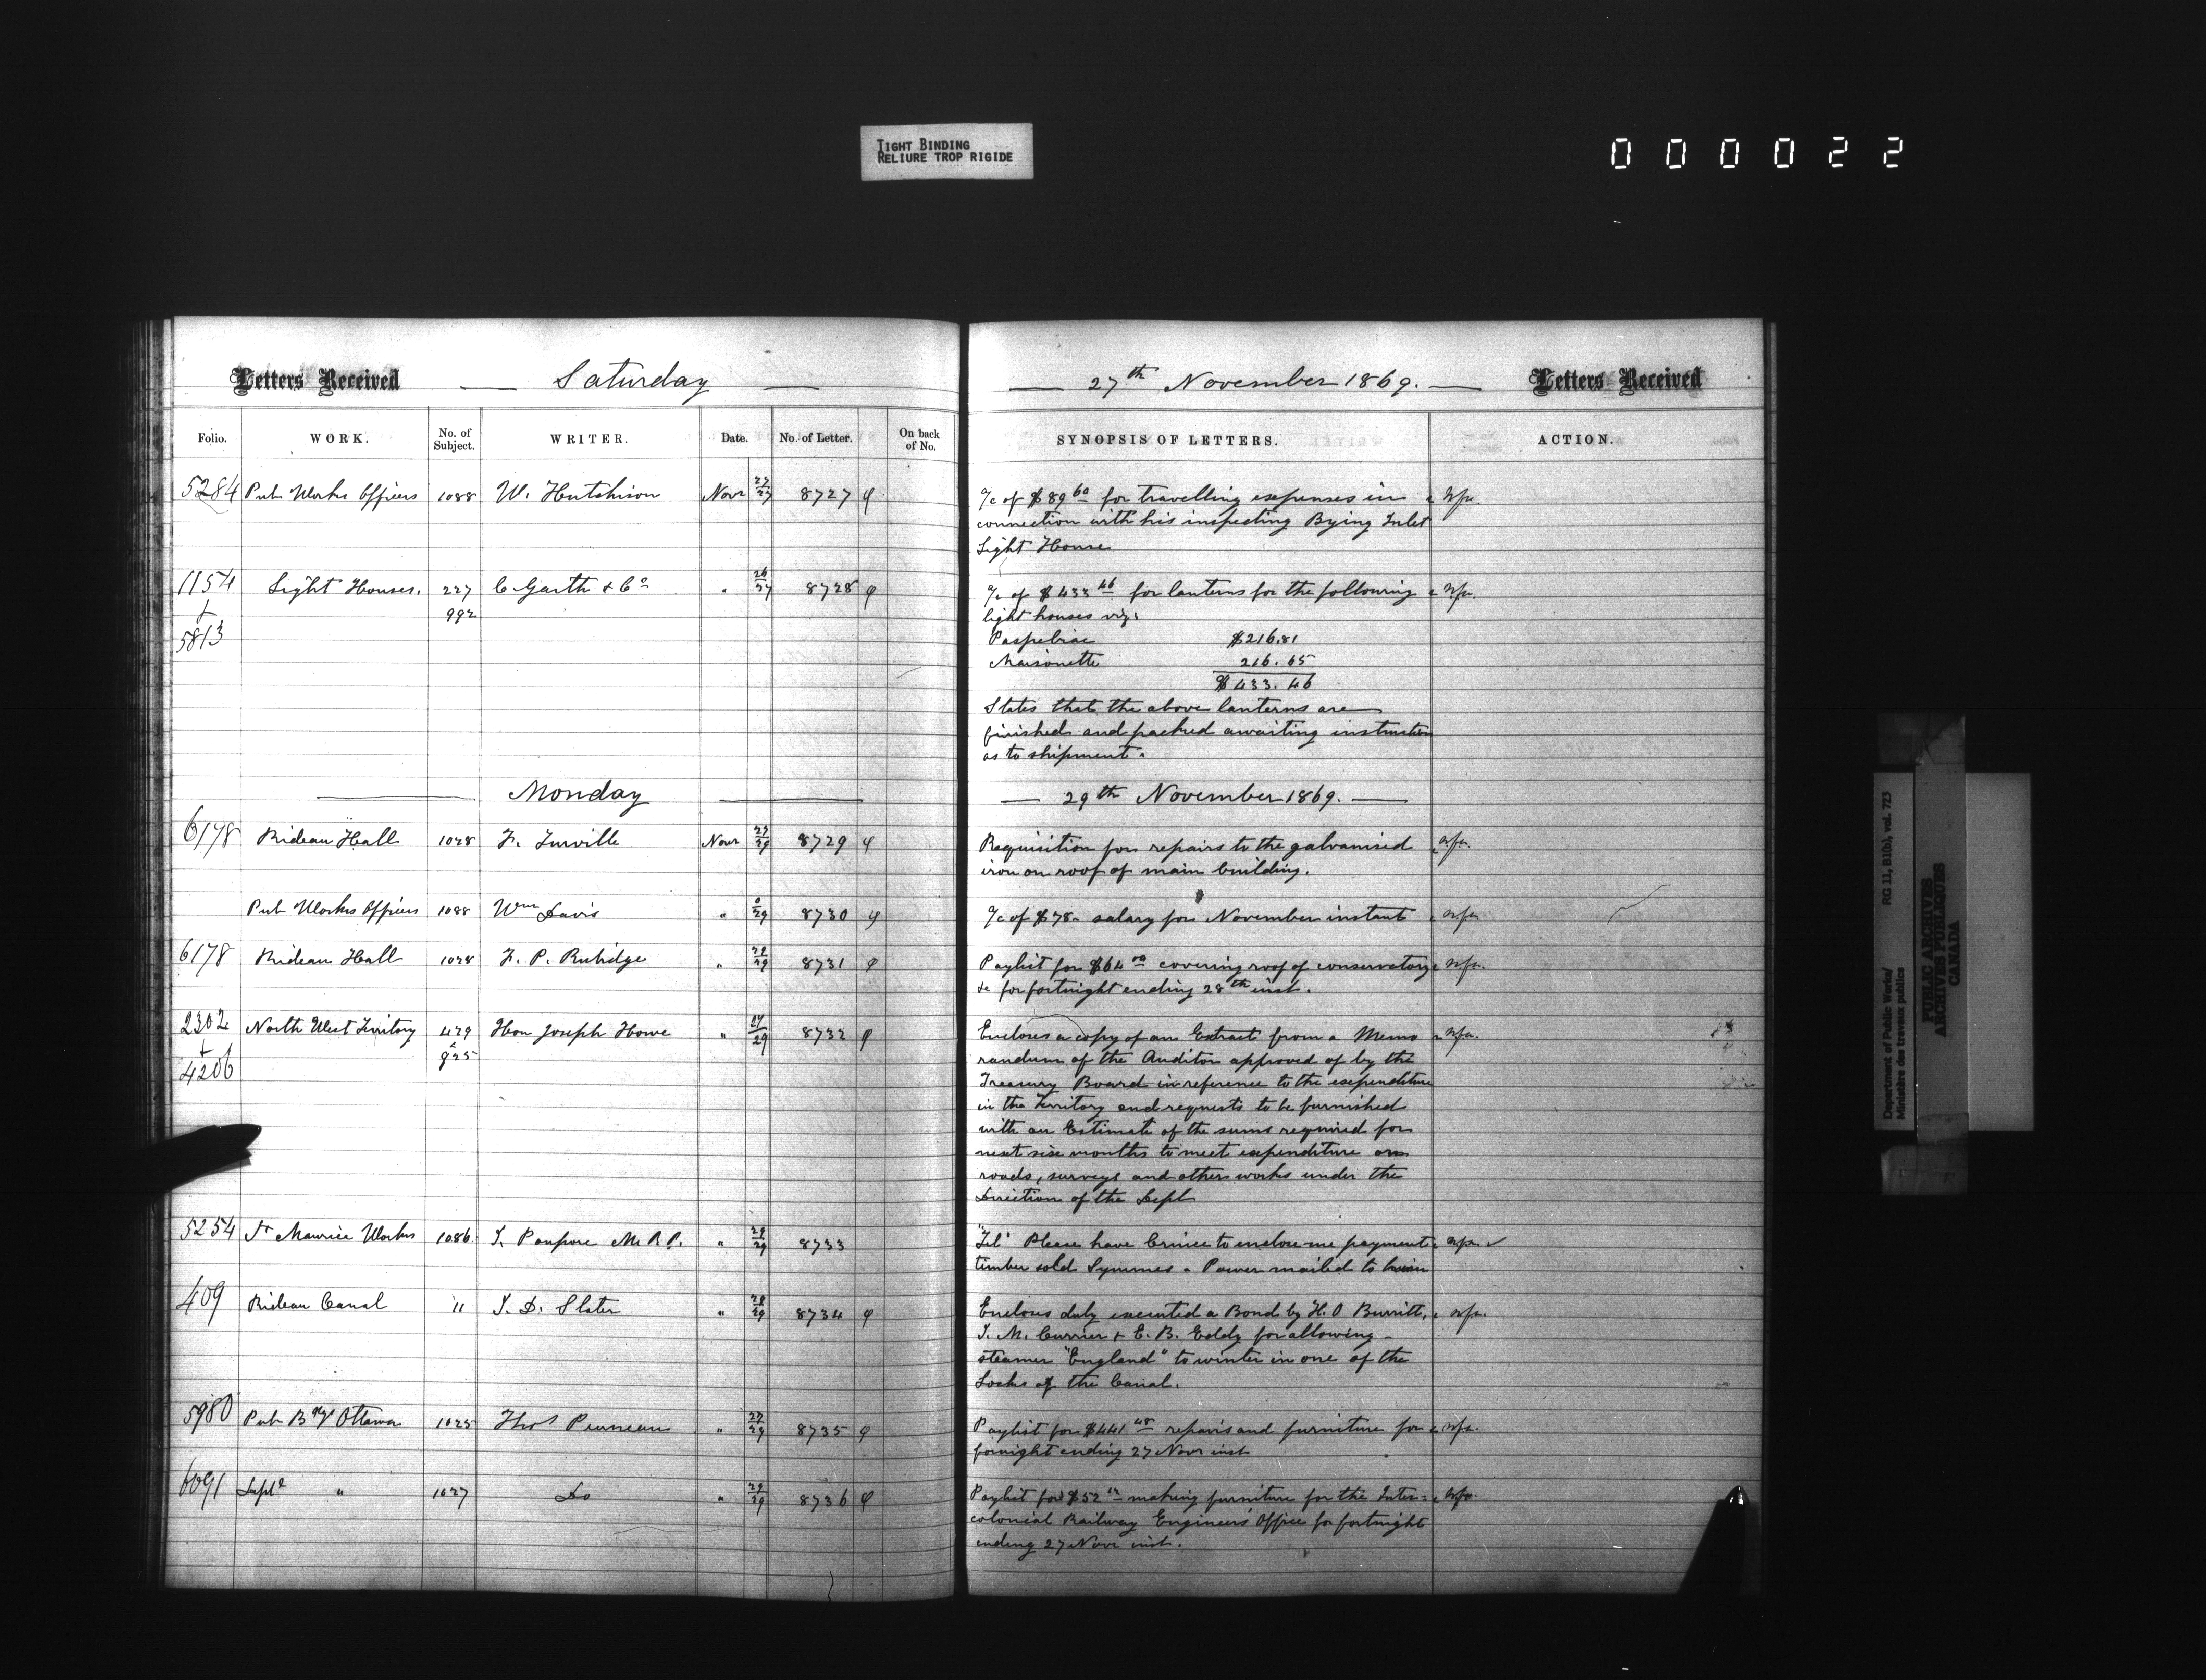 TIGHT BINDING
RELIURE TROP RIGIDE
000022
Letters Received
Saturday
27th November 1869.
Letters Received
Folio. WORK. No. of Subject. WRITER. Date. No. of Letter. On back of No. SYNOPSIS OF LETTERS. ACTION.
5284 Pub Works Officers 1088 W. Hutchison Novr 27/27 8727 φ
a/c of $89 60 for travelling expenses in
connection with his inspecting Bying Inlet
Light House
1154 Light Houses. 227 C Garth & Co " 26/27 8728 φ
+ 992
5813
a/c of $433 46 for lanterns for the following
light houses viz:
Paspebiac $216.81
Maisonette 216.65
$433.46
States that the above lanterns are
finished and packed awaiting instructions
as to shipment.
Monday
29th November 1869.
6178 Rideau Hall 1028 F. Turville Novr 27/29 8729 φ
Requisition for repairs to the galvanised
iron on roof of main building.
Pub Works Officers 1088 Wm Davis " 0/29 8730 φ
a/c of $78 - salary for November instant
6178 Rideau Hall 1028 F. P. Rubidge " 29/29 8731 φ
Paylist for $64 00 covering roof of conservatory
&c for fortnight ending 28th inst.
2302 North West Territory 429 Hon Joseph Howe " 27/29 8732 φ
+ & 925
4206
Encloses a copy of an Extract from a Memo
randum of the Auditor approved of by the
Treasury Board in reference to the expenditure
in the Territory and requests to be furnished
with an Estimate of the sums required for
next six months to meet expenditure on
roads, surveys and other works under the
Direction of the Dept
5254 St Maurice Works 1086 J. Poupore M.P.P. " 29/29 8733
"Tel" Please have Crinice to enclose me payment
timber sold Symmes - Power mailed to him
409 Rideau Canal 11 J. D. Slater " 29/29 8734 φ
Encloses duly executed a Bond by H. O Burritt,
J. M. Currier & E. B. Eddy for allowing
steamer "England" to winter in one of the
Locks of the Canal.
5980 Pub Bdgs Ottawa 1025 Thos Pruneau " 27/29 8735 φ
Paylist for $441 48 repairs and furniture for
fornight ending 27 Novr inst
6091 Deptl " 1027 Do " 29/29 8736 φ
Paylist for $52 12 making furniture for the Inter=
colonial Railway Engineers Office for fortnight
ending 27 Novr inst.
Department of Public Works/ RG 11, B1(b), vol. 723
Ministère des travaux publics
PUBLIC ARCHIVES
ARCHIVES PUBLIQUES
CANADA